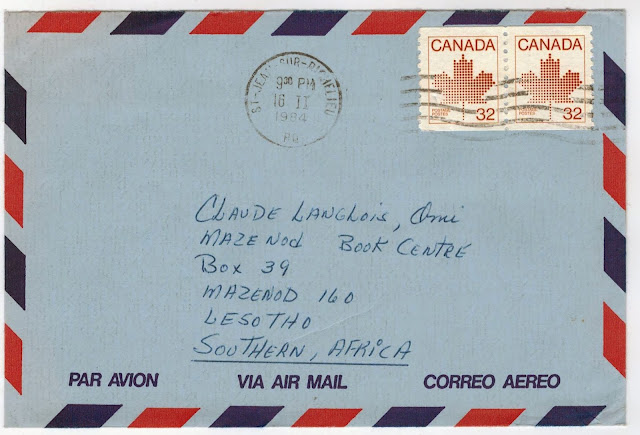 ST-JEAN-SUR-RICHELIEU
9 30 PM
16 II
1984
PQ
CANADA CANADA
POSTAGE POSTES 32 POSTAGE POSTES 32
CLAUDE LANGLOIS, Omi
MAZENOD BOOK CENTRE
Box 39
MAZENOD 160
LESOTHO
SOUTHERN, AFRICA
PAR AVION VIA AIR MAIL CORREO AEREO